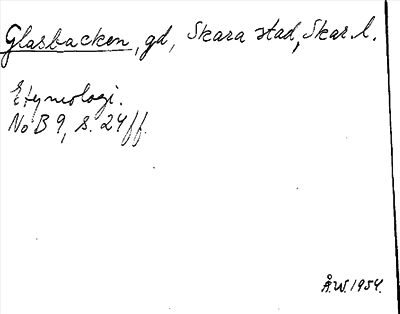 Glasbacken, gd, Skara stad, Skar. l.
Etymologi.
NoB 9, s. 24 ff.
Å.W. 1954.